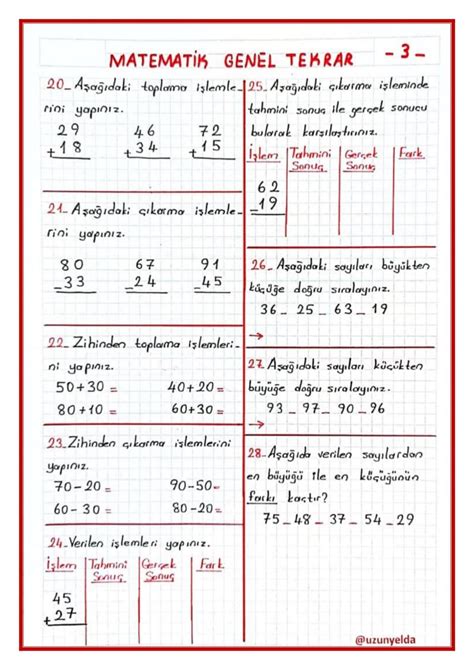 MATEMATİK GENEL TEKRAR - 3 -
20_ Aşağıdaki toplama işlemle-
rini yapınız.
29 46 72
+18 +34 +15
21_ Aşağıdaki çıkarma işlemle-
rini yapınız.
80 67 91
-33 -24 -45
22_ Zihinden toplama işlemleri-
ni yapınız.
50+30= 40+20=
80+10= 60+30=
23_ Zihinden çıkarma işlemlerini
yapınız.
70-20= 90-50=
60-30= 80-20=
24_ Verilen işlemleri yapınız.
İşlem Tahmini Gerçek Fark
Sonuç Sonuç
45
+27
25_ Aşağıdaki çıkarma işleminde
tahmini sonuç ile gerçek sonucu
bularak karşılaştırınız.
İşlem Tahmini Gerçek Fark
Sonuç Sonuç
62
-19
26_ Aşağıdaki sayıları büyükten
küçüğe doğru sıralayınız.
36 - 25 - 63 - 19
→
27_ Aşağıdaki sayıları küçükten
büyüğe doğru sıralayınız.
93 - 97 - 90 - 96
→
28_ Aşağıda verilen sayılardan
en büyüğü ile en küçüğünün
farkı kaçtır?
75 - 48 - 37 - 54 - 29
@uzunyelda